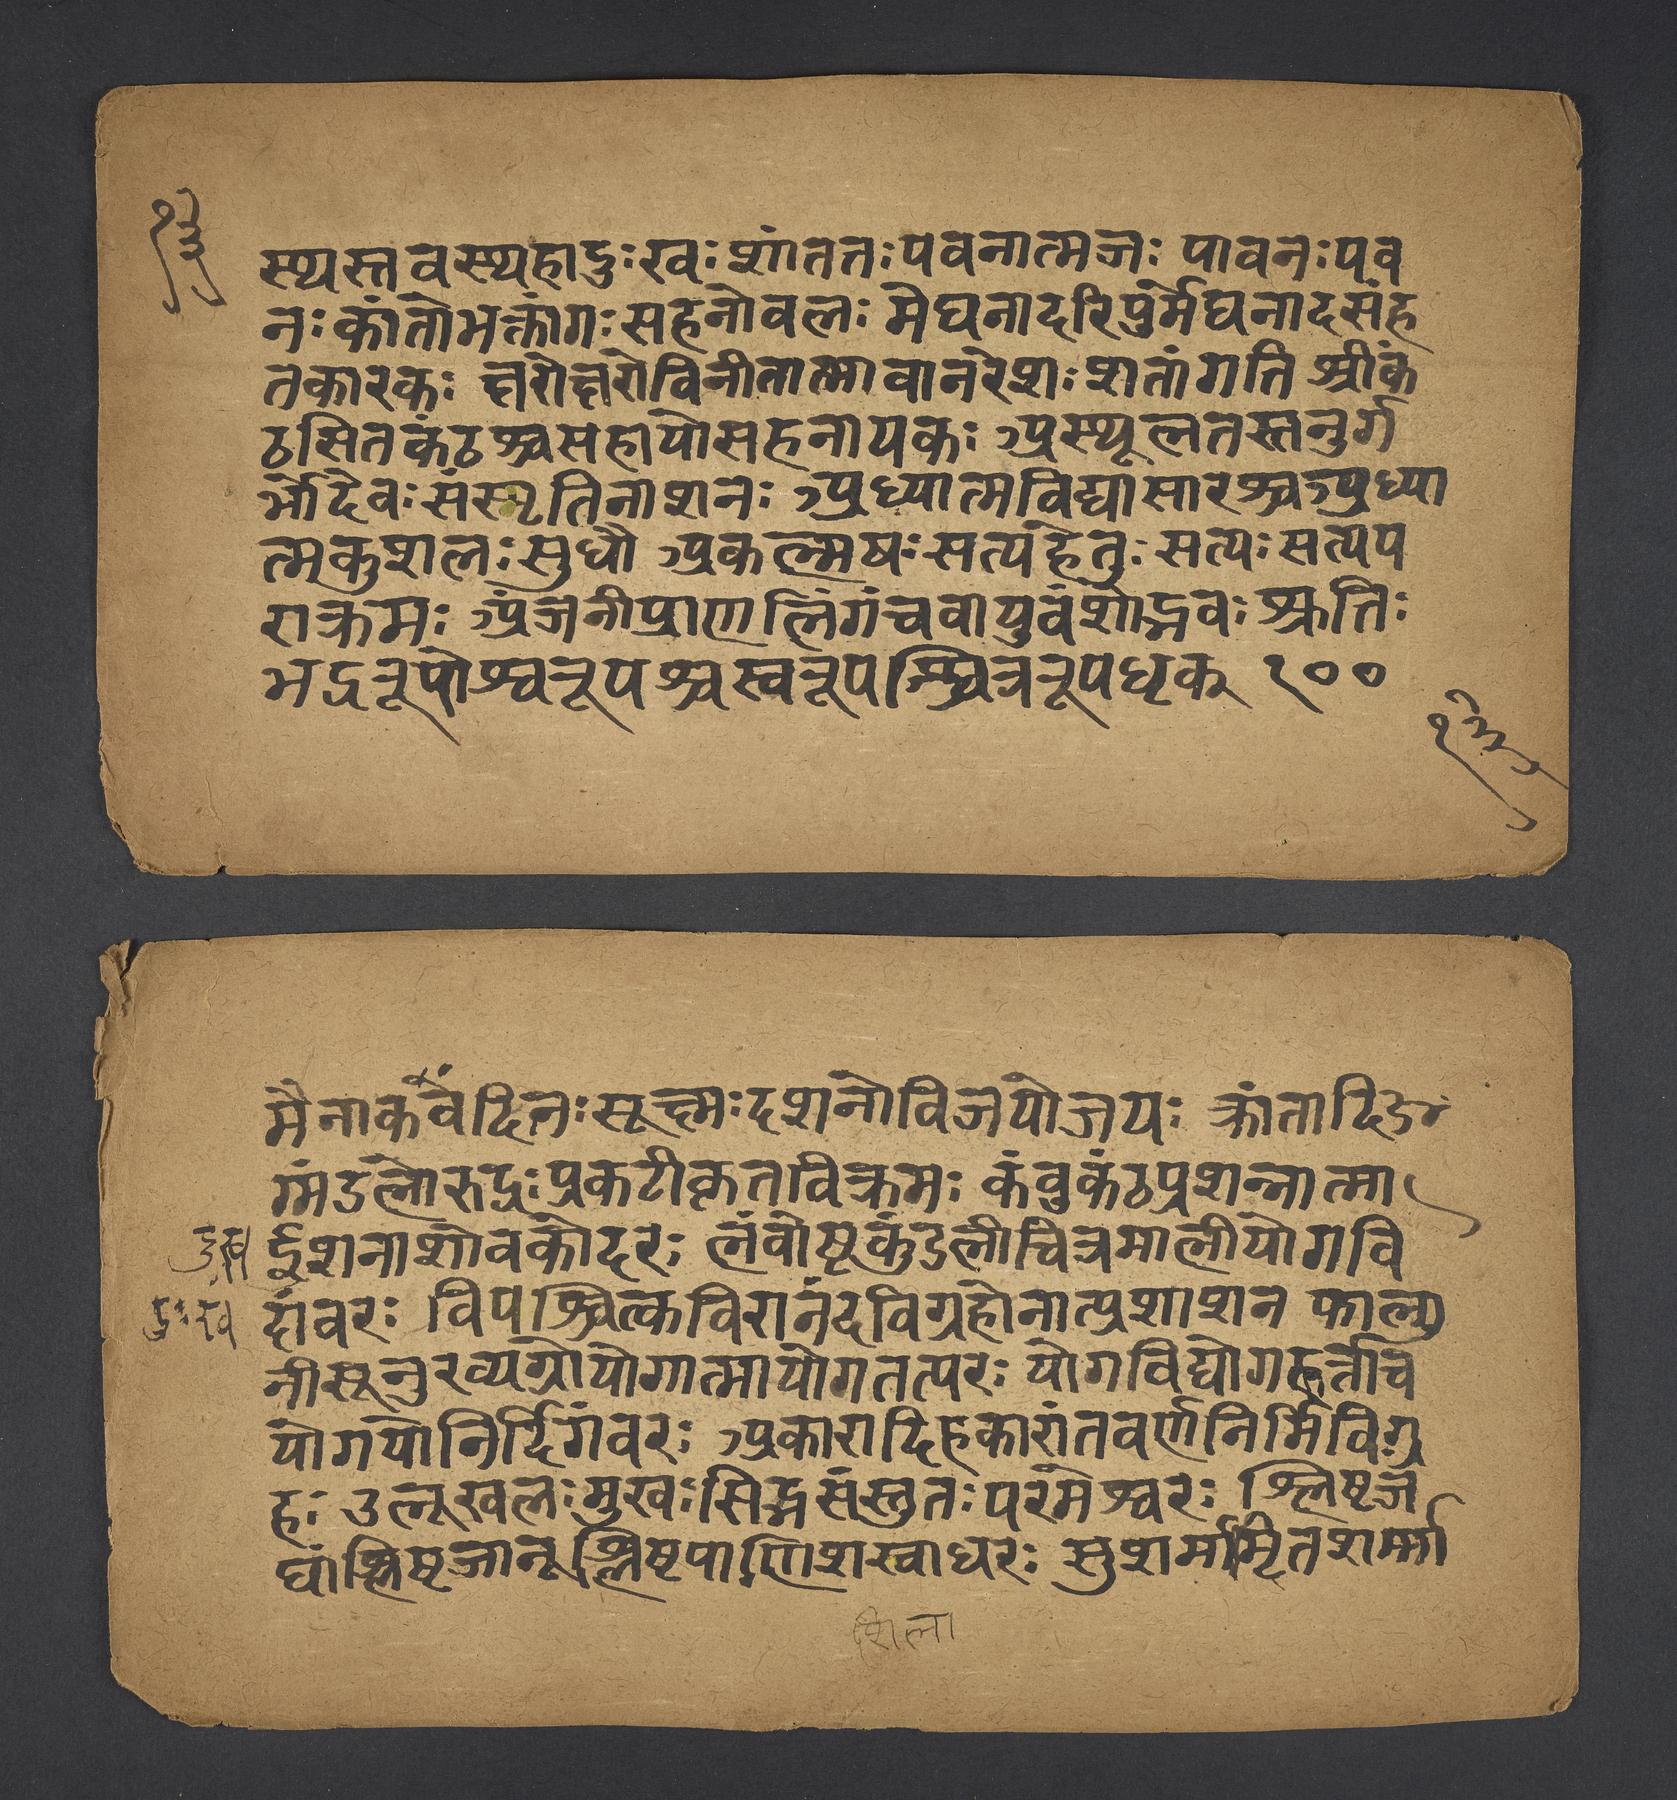 स्थस्तवस्थहादुःखःशांततःपवनात्मजः पावनःपव
नःकांतोभक्तांगःसहनोवलः मेघनादरिपुर्मेघनादसंह
तकारकः क्षरोक्षरोविनीतात्मावानरेशःशतांगति श्रीकं
ठसितकंठश्चसहायोसहनायकः अस्थूलतस्तनुर्ग
र्भोदेवःसंसृतिनाशनः अध्यात्मविद्यासारश्चअध्या
त्मकुशलःसुधी अकल्मषःसत्यहेतुःसत्यःसत्यप
राक्रमः अंजनीप्राणलिंगंचवायुवंशोद्भवःश्रुतिः
भद्ररूपोश्वरूपश्चस्वरूपश्चित्ररूपधृक् १००
१३
मैनाकवंदितःसूक्ष्मःदशनोविजयोजयः क्रांतादि
ग्मंडलोरुद्रःप्रकटीकृतविक्रमः कंवुकंठप्रशन्नात्मा
ईशनाशोवकोदरः लंवोष्टकुंडलीचित्रमालीयोगवि
दांवरः विपश्चित्कविरानंदविग्रहोनात्प्रशाशन फाल्गु
नीसूनुरव्यग्रोयोगात्मायोगतत्परः योगविद्योगकर्त्ताच
योगयोनिर्दिगंवरः अकारादिहकारांतवर्णनिर्मिविग्र
हः उलूखलःमुखःसिद्धसंस्तुतःपरमेश्वरः श्लिष्टजं
घांश्लिष्टजानूश्लिष्टपाणिशखाधरः सुशर्मामितशर्म्मा
शिला